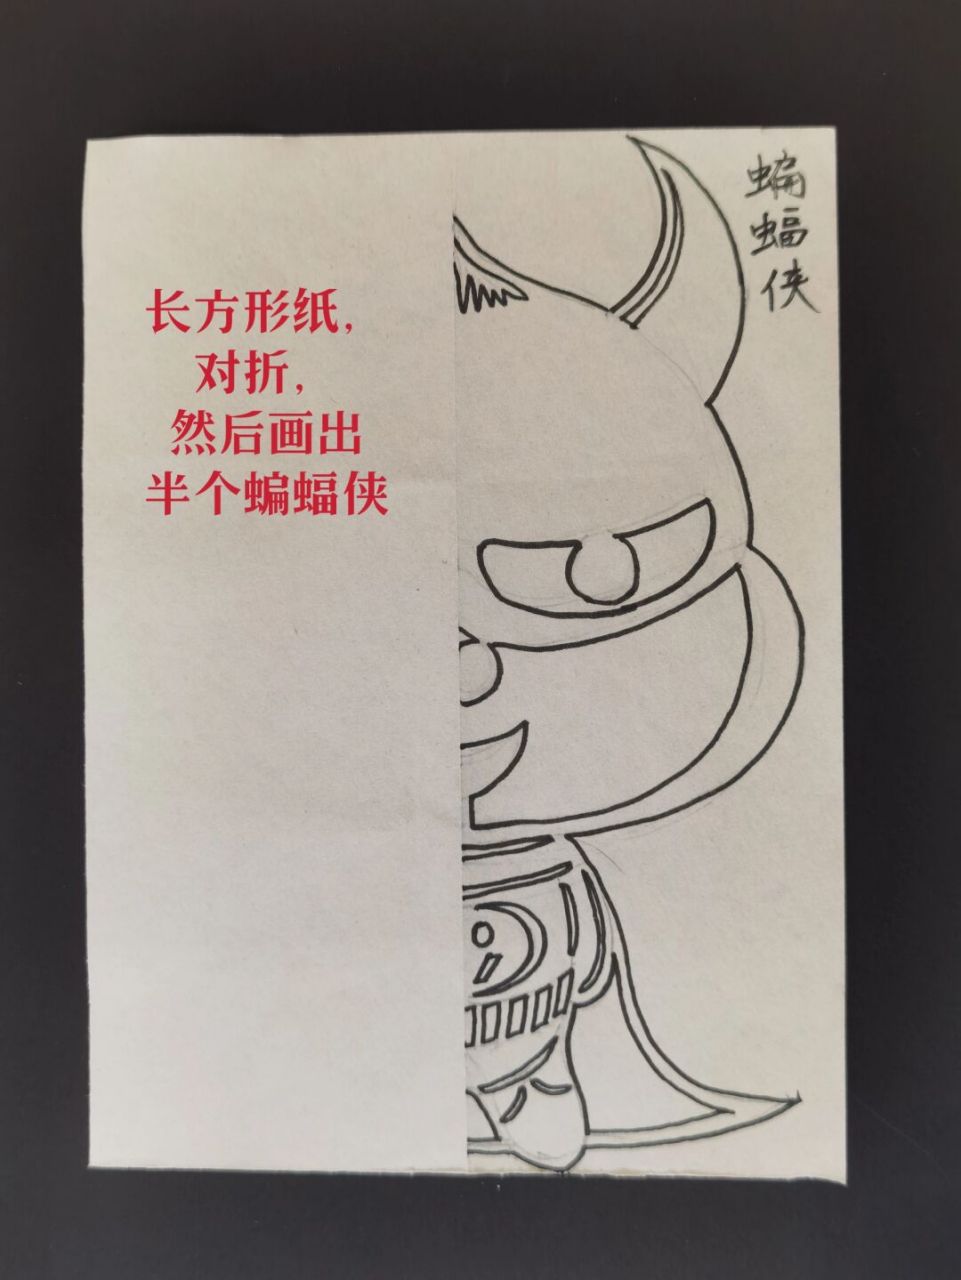 长方形纸，
对折，
然后画出
半个蝙蝠侠
蝙
蝠
侠